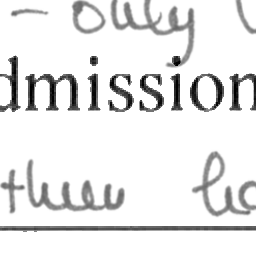 - only
dmission
then ha